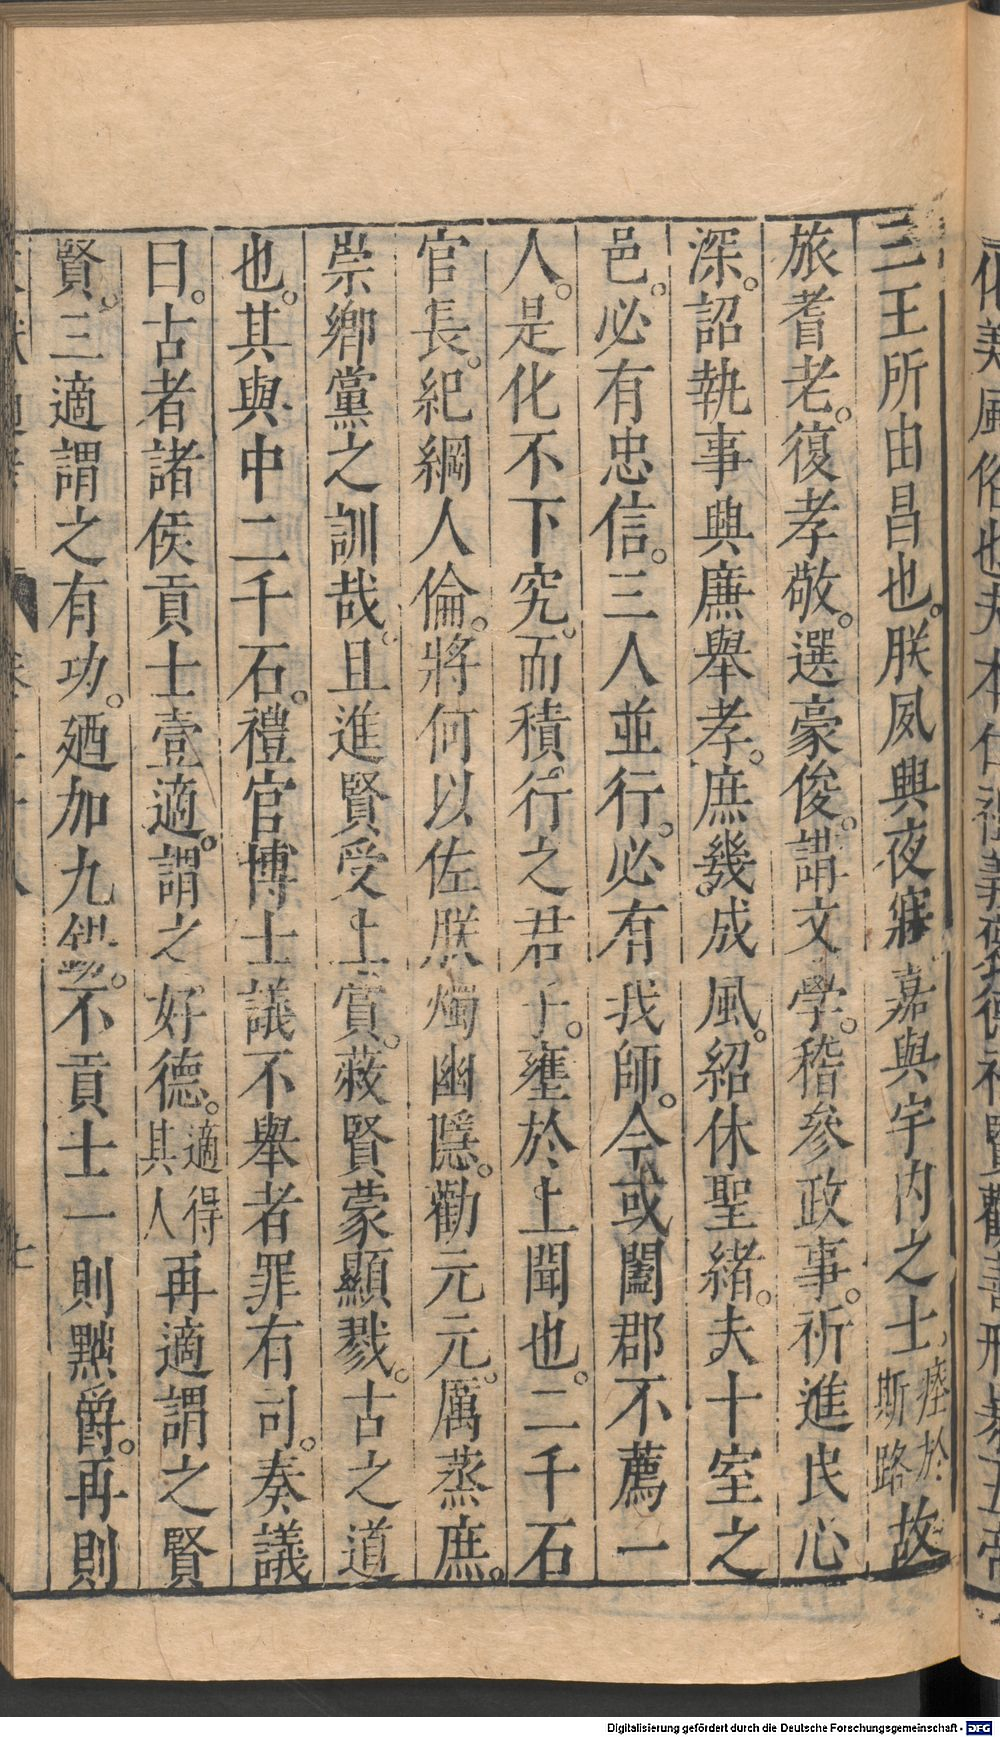 三王所由昌也。朕夙興夜寐嘉與宇内之士。瘞於斯路故
旅耆老。復孝敬。選豪俊。講文學。稽參政事。祈進民心
深。詔執事興廉舉孝。庶幾。成風。紹休聖緒。夫十室之
邑。必有忠信。三人並行。必有我師。今或闔郡不薦一
人。是化不下究。而積。行之君子。壅於上聞也。二千石
官長。紀綱人倫。將何以佐朕燭幽隱。勸元元。厲蒸庶。
崇鄉黨之訓哉。且進賢受上賞。蔽賢蒙顯戮。古之道
也。其與中二千石。禮官博士議不舉者罪有司。奏議
曰。古者諸侯貢士壹適。謂之好德。適得其人再適謂之賢
賢。三適謂之有功。廼加九錫。不貢士一則黜爵。再則
Digitalisierung gefördert durch die Deutsche Forschungsgemeinschaft - DFG